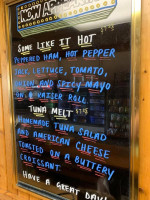 NEW ARRIVALS
SOME LIKE IT HOT
PEPPERED HAM, HOT PEPPER
JACK, LETTUCE, TOMATO,
ONION AND SPICY MAYO
ON A KAISER ROLL.
TUNA MELT
HOMEMADE TUNA SALAD
AND AMERICAN CHEESE
TOASTED ON A BUTTERY
CROISSANT.
HAVE A GREAT DAY!